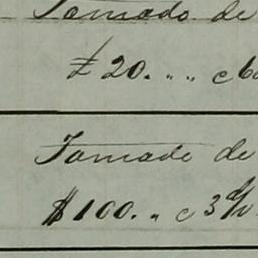 Tomado de
£ 20. " " c
Tomado de
$ 100. " c 3%